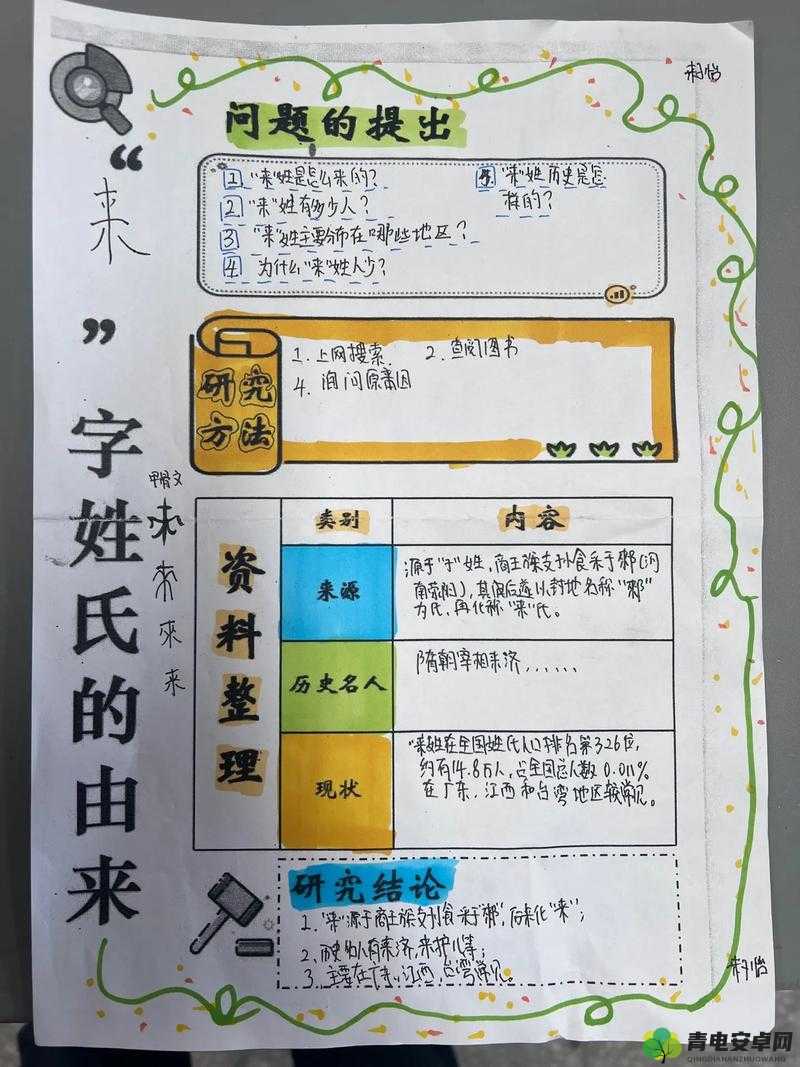 来习怡
问题的提出
1 "来"姓是怎么来的?
2 "来"姓有多少人?
3 "来"姓主要分布在哪些地区?
4 为什么"来"姓人少?
5 "来"姓历史是怎
样的?
“来”字姓氏的由来
研究
方法
1. 上网搜索. 2. 查阅图书
4. 询问原因
甲骨文
來
來
来
资料整理
类别
内容
来源
源于"子"姓,商王族支孙食采于郲(河
南荥阳),其后遂以封地名称"郲"
为氏,再化称"来"氏。
历史名人
隋朝宰相来济......
现状
"来姓在全国姓氏人口排名第326位,
约有14.8万人,占全国总人数0.011%
在广东、江西和台湾地区较常见。
研究结论
1. "来"源于商王族支孙食采于"郲",后来化"来";
2. 历史名人有来济,来护儿等;
3. 主要在广东、江西、台湾常见。
来习怡
青电安卓网
QINGDIANANZHUOWANG